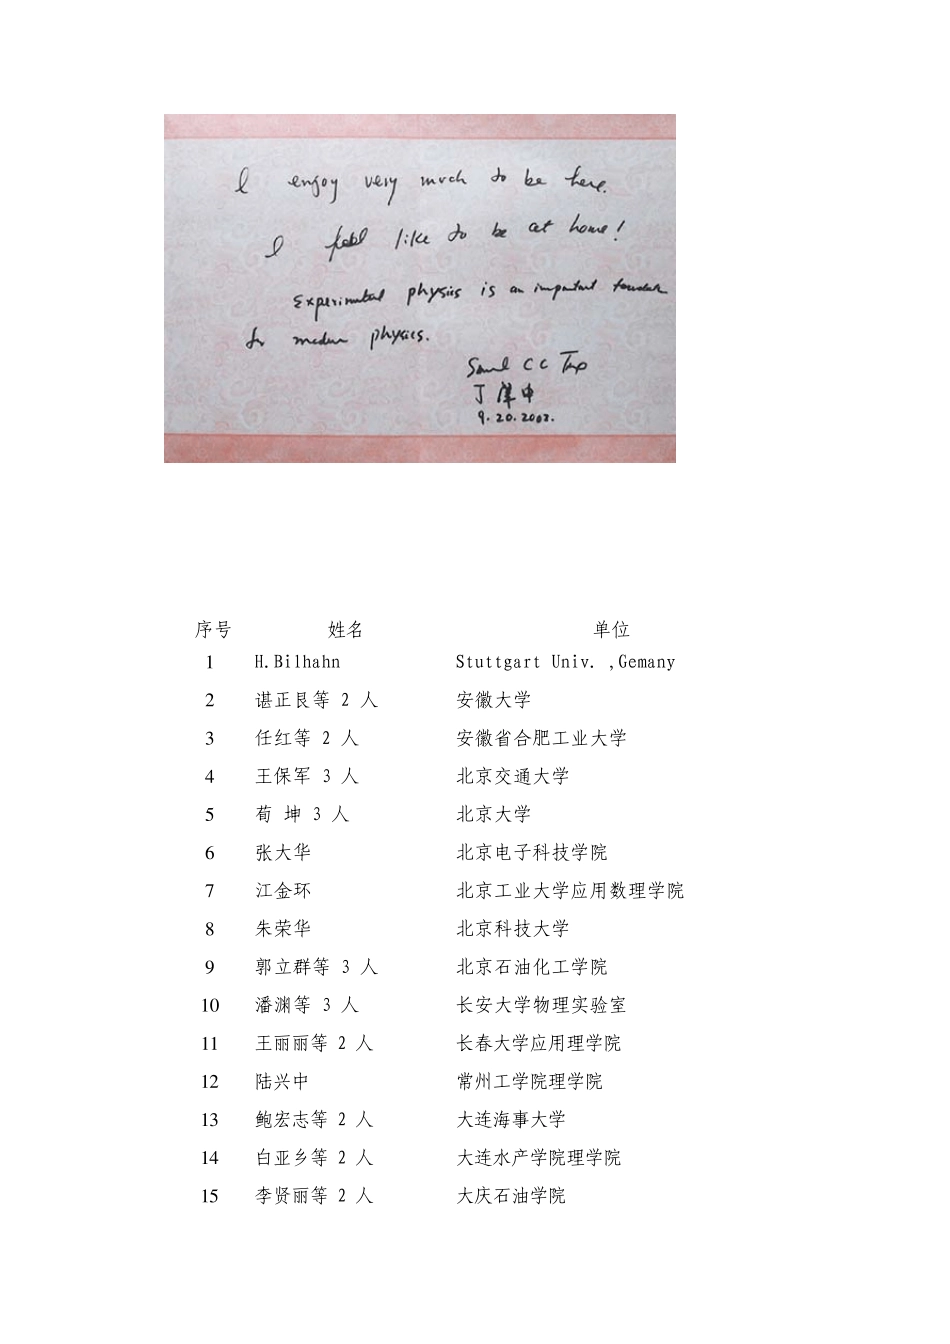 I enjoy very much to be here.
I feel like to be at home!
Experimental physics is an important
for modern physics.
Samuel CC Ting
丁肇中
9.20.2002.
序号 姓名 单位
1 H.Bilhahn Stuttgart Univ. ,Gemany
2 谌正艮等 2 人 安徽大学
3 任红等 2 人 安徽省合肥工业大学
4 王保军 3 人 北京交通大学
5 荀 坤 3 人 北京大学
6 张大华 北京电子科技学院
7 江金环 北京工业大学应用数理学院
8 朱荣华 北京科技大学
9 郭立群等 3 人 北京石油化工学院
10 潘渊等 3 人 长安大学物理实验室
11 王丽丽等 2 人 长春大学应用理学院
12 陆兴中 常州工学院理学院
13 鲍宏志等 2 人 大连海事大学
14 白亚乡等 2 人 大连水产学院理学院
15 李贤丽等 2 人 大庆石油学院